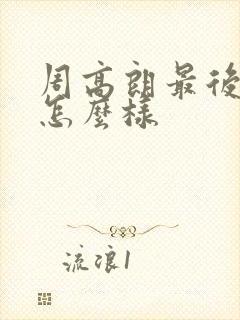 周高朗最後
怎麼樣
流浪1